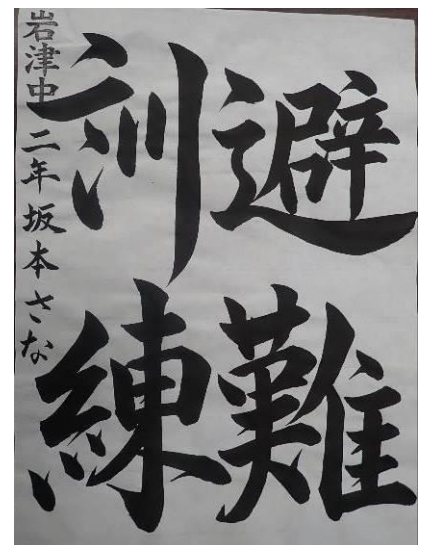 避難
訓練
岩津中二年坂本さな